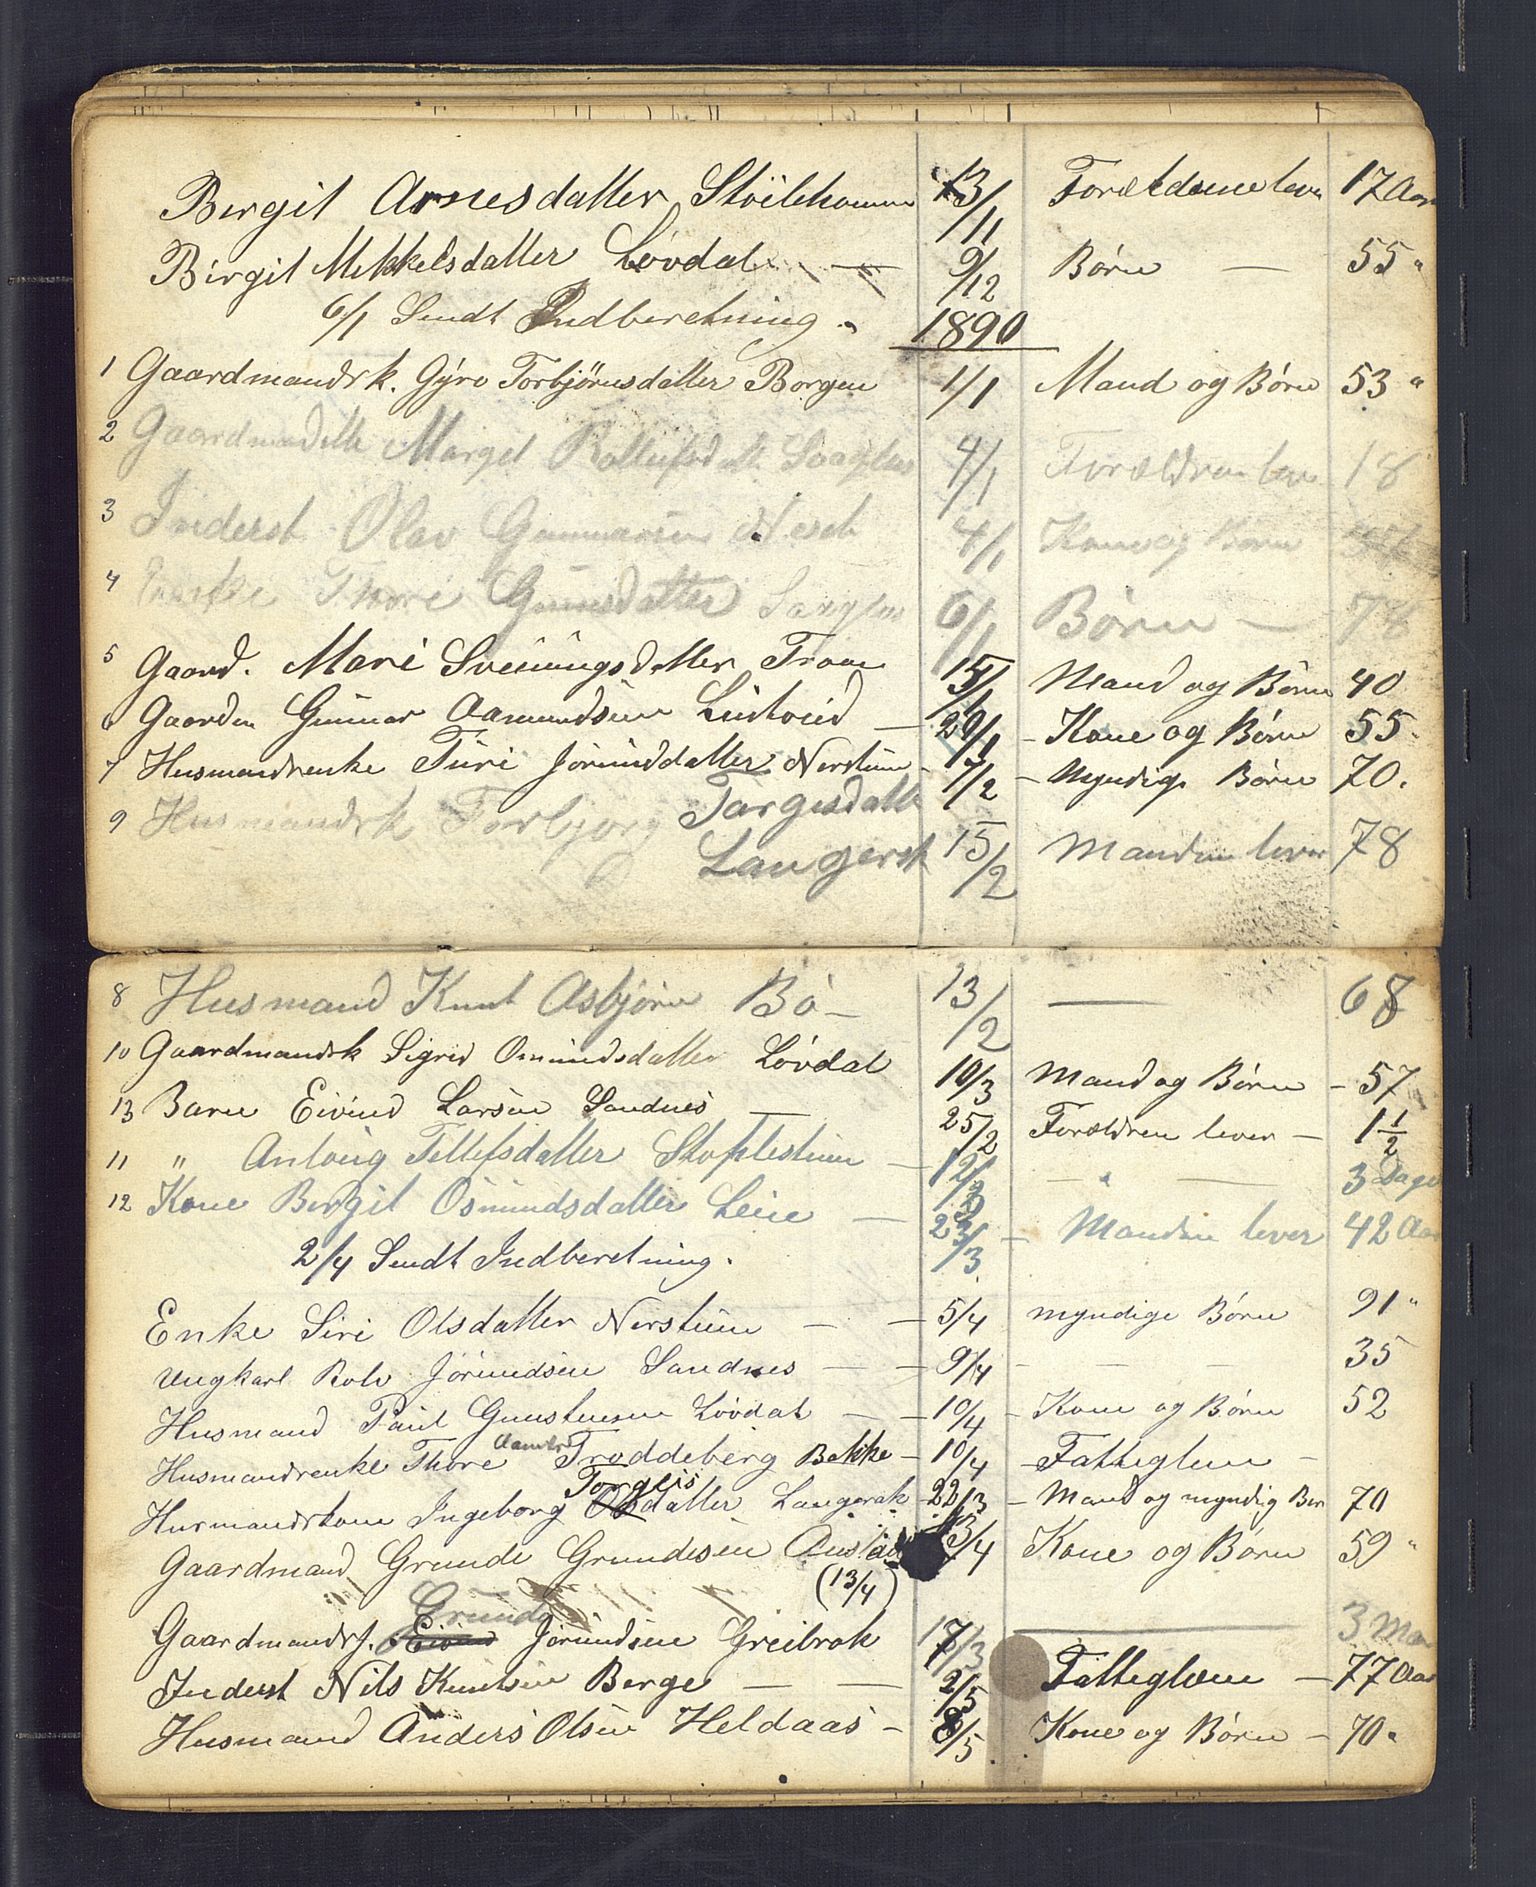 Birgit Arnesdatter Stöilehommen 13/11 Forældrene lever 17 Aar
Birgit Mikkelsdatter Lövdal — 9/12 Børn — 55 "
6/1 Sendt Indberetning. 1890
1 Gaardmandsk. Gÿro Torbjörnsdatter Borgen 1/1 Mand og Börn 53 "
2 Margit 4/1 Forældren lever 18
3 Inderst Olav Gunnarsen 4/1 Kone og Børn
4 Enke Thore Gunnsdatter 6/1 Børn — 78
5 Gaard. Mari Sveinungsdatter Traae 15/1 Mand og Börn 40
6 Gaardm Gunnar Aamundsen Listveid — 29/1 – Kone og Börn 55.
7 Husmandsenke Turi Jörundsdatter Nerstuen – 1/2 – Myndige Börn 70.
9 Husmandsk Torbjorg Targesdatter
Langerak 15/2 Manden lever 78
8 Husmand Knut Asbjörn Bö – 13/2 — 68
10 Gaardmandsk Sigrid Omundsdatter Lövdal 10/3 Mand og Börn – 57
13 Barn Eivind Larsen Sandnes — 25/2 Forældren lever – 1 1/2
11 " Anlaug Tellefsdatter — 12/3 — " — 3 Dage
12 Kone Birgit Osmundsdatter Leiie — 23/3 – Manden lever 42 Aar
2/4 Sendt Indberetning.
Enke Siri Olsdatter Nerstuen — — 5/4 myndige Börn 91 "
Ungkarl Rolv Jörundsen Sandnes — — 9/4 – – – 35
Husmand Paul Gunstensen Lövdal — — 10/4 – Kone og Børn 52
Husmandsenke Thore Troddeberg Bekke – 10/4 – Fattiglem –
Torgeis
Husmandskone Ingeborg Osdatter Langerak – 22/3 – Mand og myndig Bør 70
Gaardmand Grunde Grundesen 13/4 Kone og Börn 59 "
(13/4)
Grunde
Gaardmands. Eivind Jörundsen Greibrok 17/3 — 3 Maa
Inderst Nils Knutsen Berge — — 2/5 Fattiglem – 77 Aar
Husmand Anders Olsen Heldaas – 8/5 Kone og Börn – 70 "